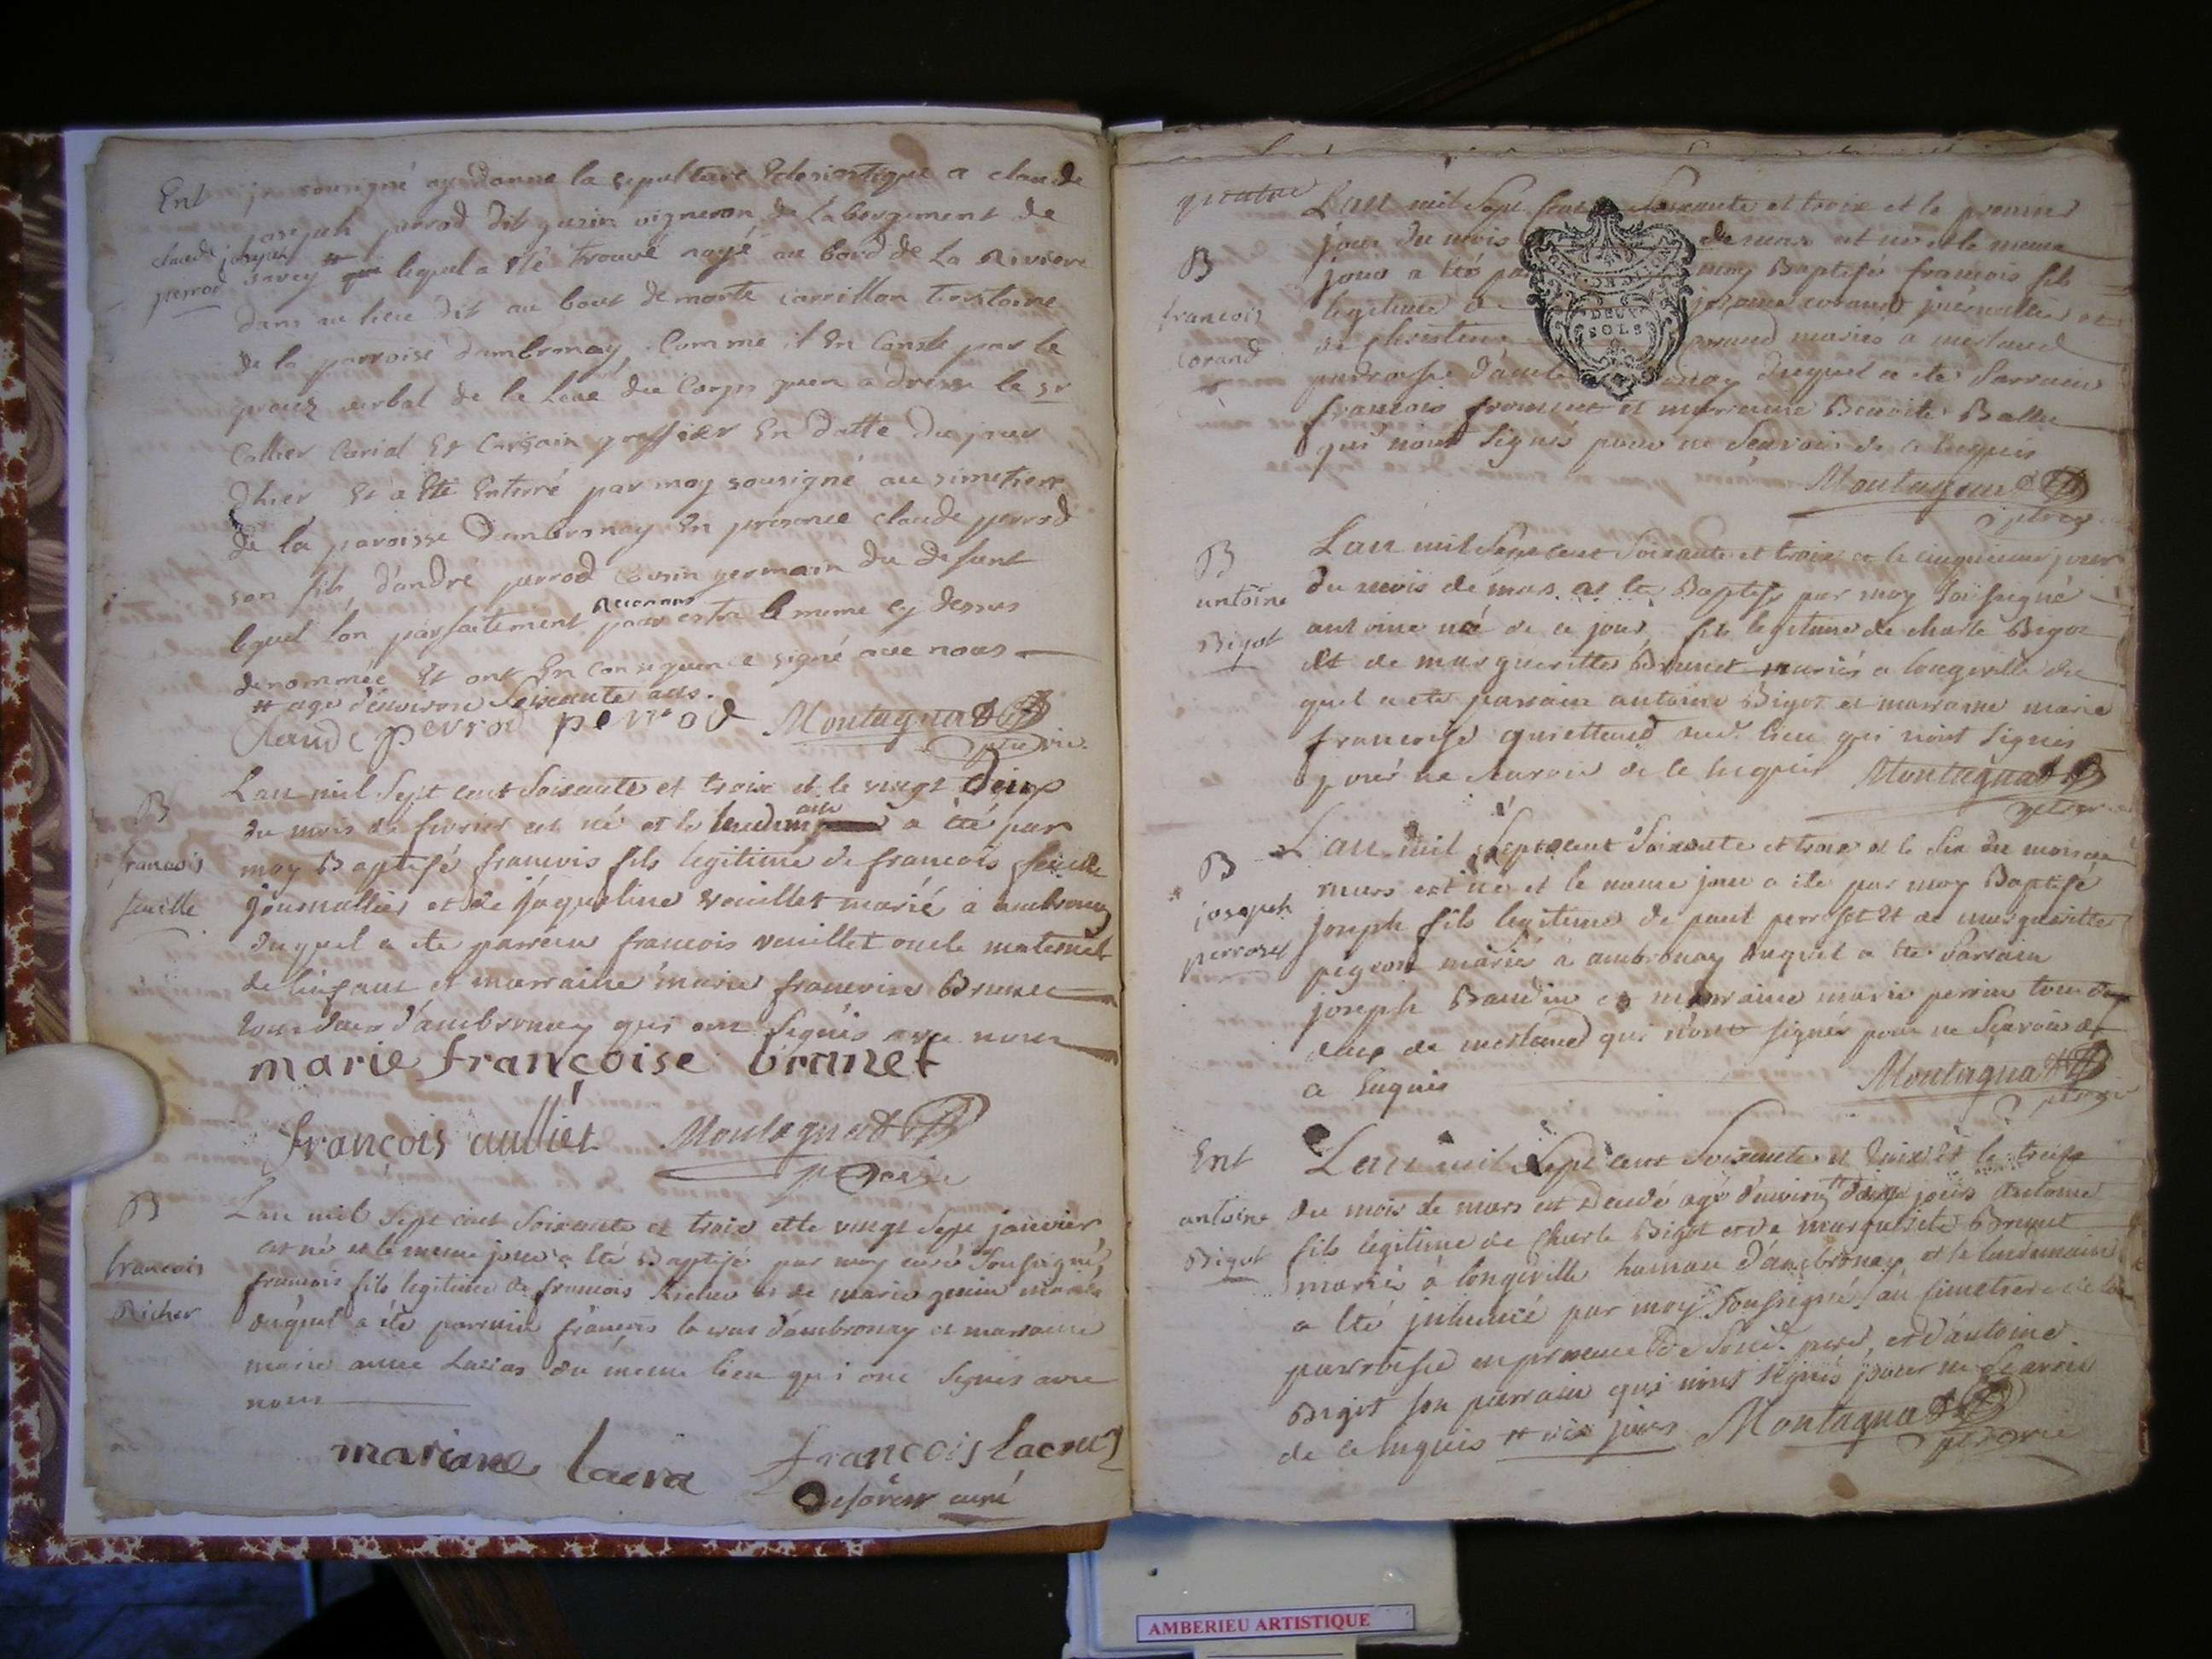 Ent je sousigné ay donné la sepulture Eclesiastique a claude
joseph perrod dit guerin vigneron de Labergement de
claude joseph
perrod
varey # lequel a Eté trouvé nayé au bord de La Riviere
dans un lieu dit au bout de morte carrillon Teritoire
de la parroise dambronay, Comme il En Conste par le
verbal de la Levé du Corps quen a dressé le sr
Collier Curial Et greffier En datte du jour
dhier Et a Eté Enterré par moy sousigné au simetiere
de la paroisse dambronay En présence claude perrod
son fils, d'andré perrod Cousin germain du defunt
lequel lon parfaitement Reconnus pour estre le meme cy dessus
denommée Et ont En consequence signé avec nous
# agé denviron Soixante ans.
Claude perrod perrod Montagnat
B
francois
feuille
Lan mil Sept cent Soixante et trois et le vingt Deux
du mois de fevrier est né et le lendemain a été par
moy Baptisé francois fils legitime de francois feuille
journallier et de jaqueline vouillet marié à ambronay
duquel a ete parrein francois vouillet oncle maternel
de lenfant et marraine marie francoise Brunet
tous deux d'ambronay qui ont signés avec nous
marie françoise brunet
françois aulliet Montagnat
B
francois
Richer
Lan mil Sept cent Soixante et trois et le vingt Sept janvier
est né et le meme jour a eté Baptisé par moy curé soussigné,
francois fils legitime de francois Richer et de marie genin mariés
duquel a été parrain françois la crus d'ambronay et marraine
marie anne Lacras du meme lieu qui ont signés avec
nous
mariane Lacra françois Lacruz
curé
quatre
B
francois
Corand
Lan mil Sept Cent Soixante et trois et le premier
jour du mois de mars est né et le meme
jour a eté par moy Baptisé francois fils
legitime de corand journallier et
de christine mariés a merland
parroisse d'ambronay duquel a eté Parrain
francois froment et marraine Benoite Ballet
qui n'ont signés pour ne Sçavoir de ce Enquis
Montagnat
DEUX
SOLS
B
antoine
Bigot
Lan mil Sept cent Soixante et trois et le cinquieme jour
du mois de mars a eté Baptisé par moy Soussigné
antoine né de ce jour, fils legitime de charle Bigot
et de marguerittes Brunet mariés a longeville du
quel a eté parrain antoine Bigot et marraine marie
francoise dud. lieu qui n'ont signés
pour ne Scavoir de ce Enquis Montagnat
B
joseph
perroset
Lan mil Sept cent Soixante et trois et le Six du mois de
mars est né et le meme jour a eté par moy Baptisé
joseph fils legitime de paul perroset et de margueritte
pigeon mariés à ambronay duquel a eté Parrain
joseph Baudin et marraine marie perrin tous
deux de merland qui n'ont signés pour ne Sçavoir de
ce Enquis Montagnat
Ent
antoine
Bigot
Lan mil Sept cent Soixante et trois et le treize
du mois de mars est Decedé agé d'environ # jours Antoine
fils legitime de Charle Bigot et de margueritte Brunet
mariés à longeville hameau d'ambronay, et le lendemain
a eté inhumé par moy Soussigné au Simetiere de la
parroisse en presence de Sond. pere, et d'antoine
Bigot son parrain qui n'ont signés pour ne Scavoir
de ce Enquis # dix jours Montagnat
AMBERIEU ARTISTIQUE